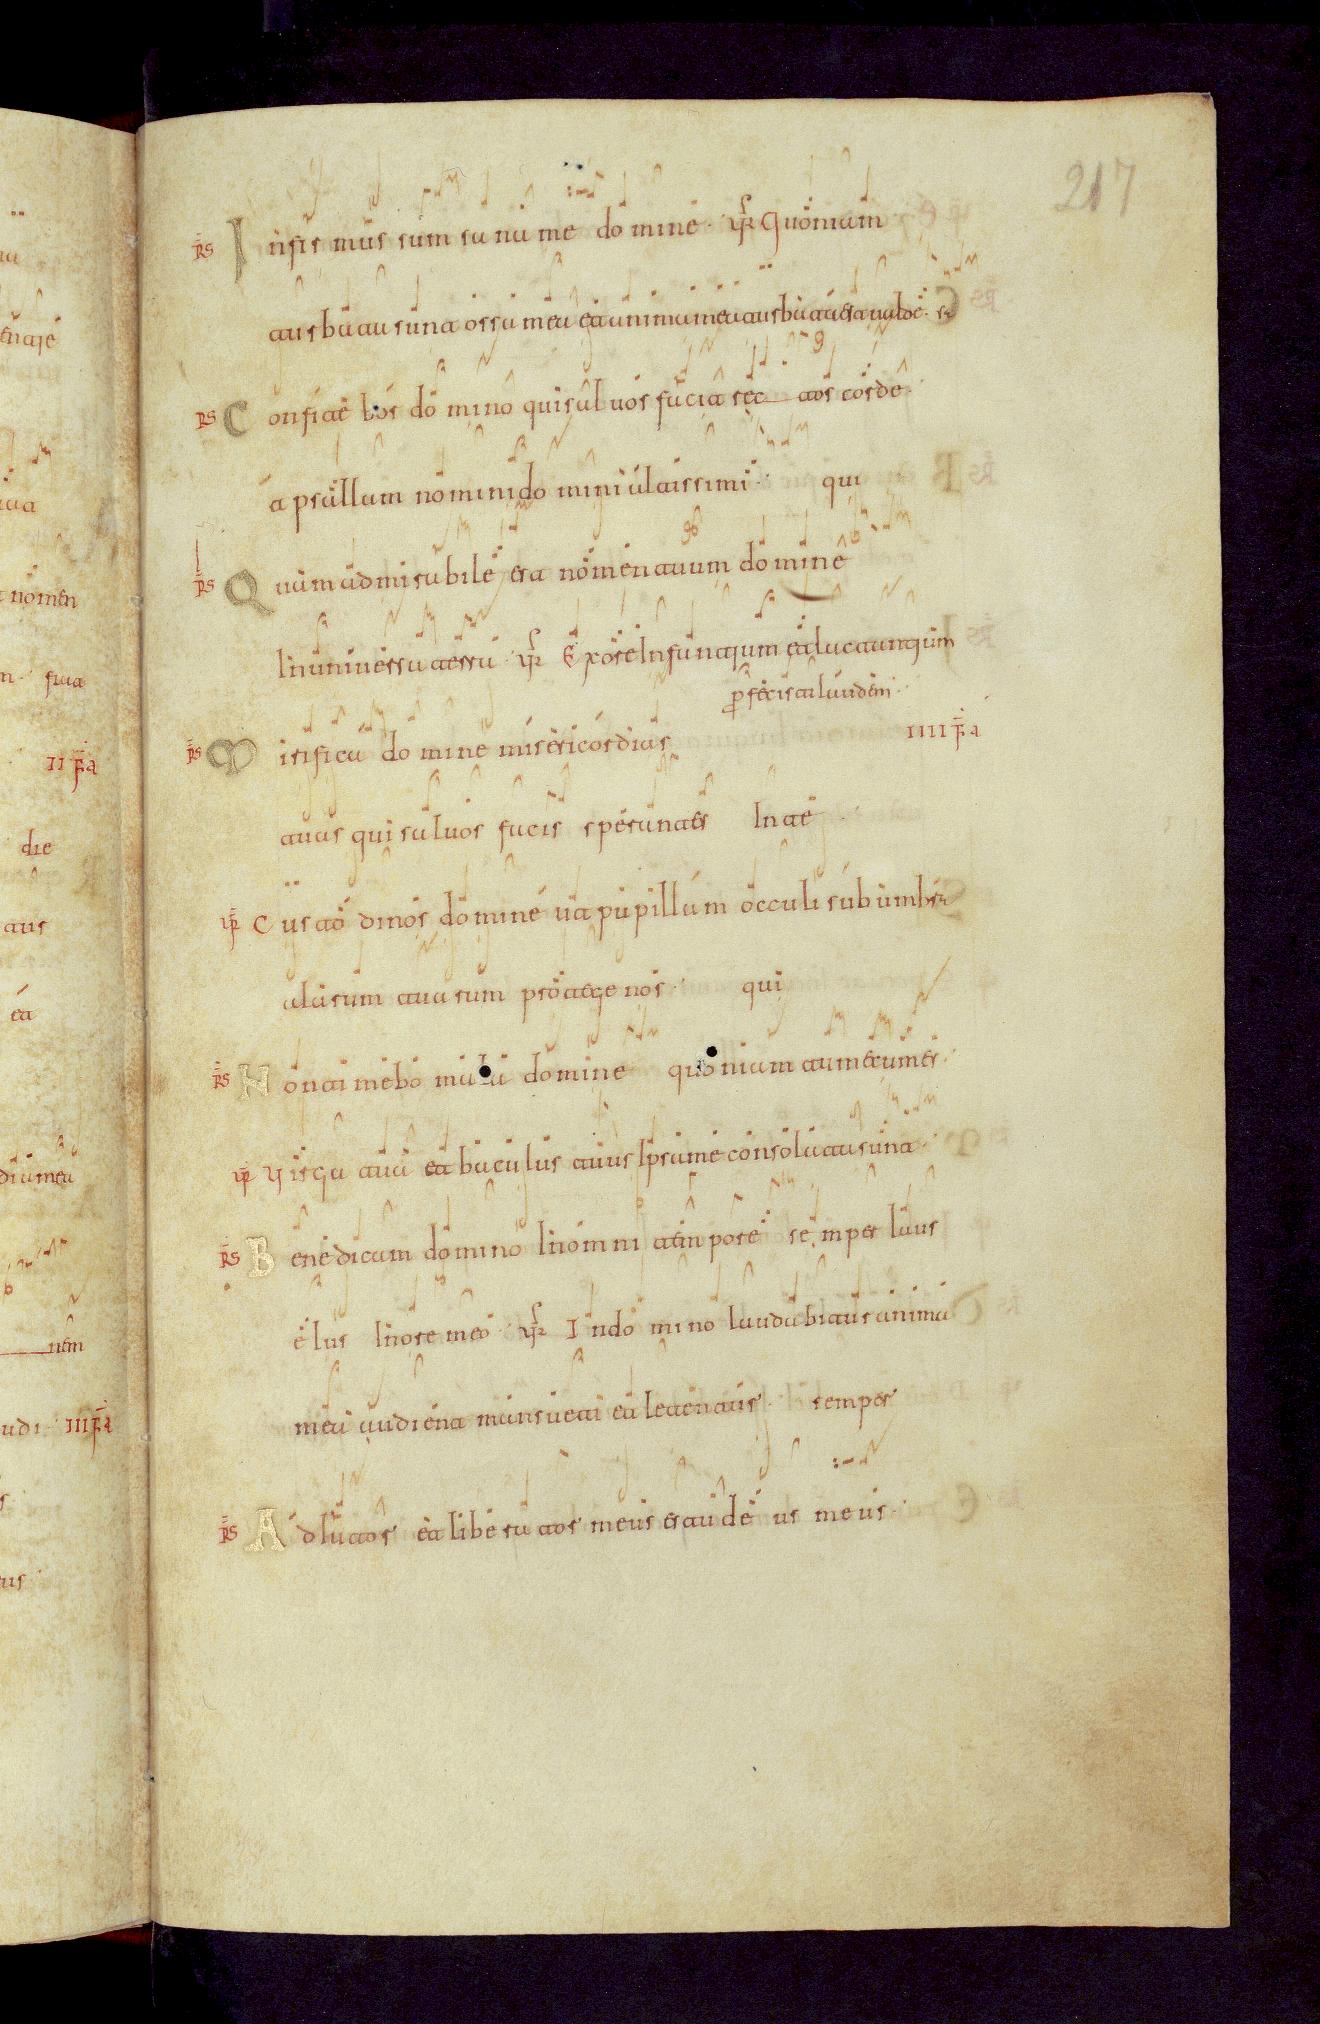 217
RS Infirmus sum sana me domine · VR Quoniam
turbata sunt ossa mea et anima mea turbata est valde · s
RS Confitebor domino qui salvos facit rectos corde ·
et psallam nomini domini altissimi · qui
RS Quam admirabile est nomen tuum domine
In universa terra · VR Ex ore Infantium et lactantium
perfecisti laudem ·
RS Mirifica domine misericordias IIII FRA
tuas qui salvos facis sperantes In te ·
VR Custodi nos domine ut pupillam occuli sub umbra
alarum tuarum protege nos · qui
RS Non timebo mala domine quoniam tu mecum es ·
VR Virga tua et baculus tuus Ipsa me consolata sunt ·
RS Benedicam domino In omni tempore semper laus
eius In ore meo · VR In domino laudabitur anima
mea audient mansueti et letentur · semper
RS Adiutor et liberator meus esto deus meus ·